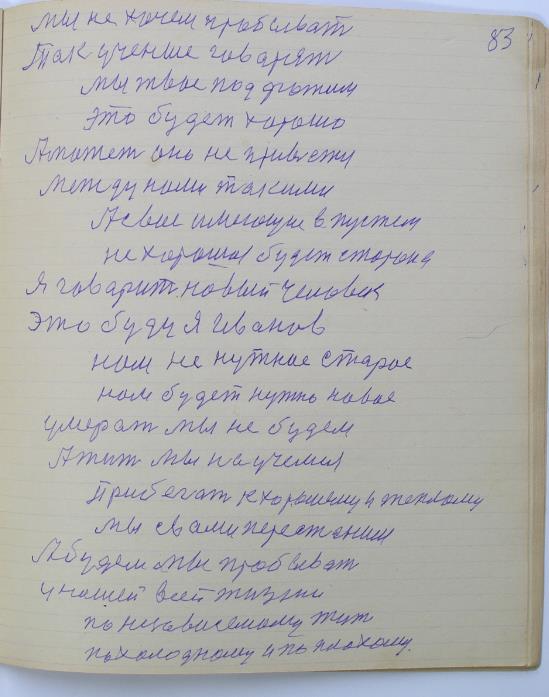 83
мы не хочем пробыват
Так учение говарят
мы твое поддржим
Это будет хорошо
А может оно не
между нами такими
А свое имеющие в пустем
не хорошая будет сторона
Я говарит новый человек
Это буду я Иванов
нам не нутное старое
нам будет нутно новое
умерат мы не будем
А тит мы научемся
Прибегат к хорошему и теплому
мы с вами перестоним
А будем мы пробыват
у нашей всей тизни
по независемому тит
по холодному и по плохому.